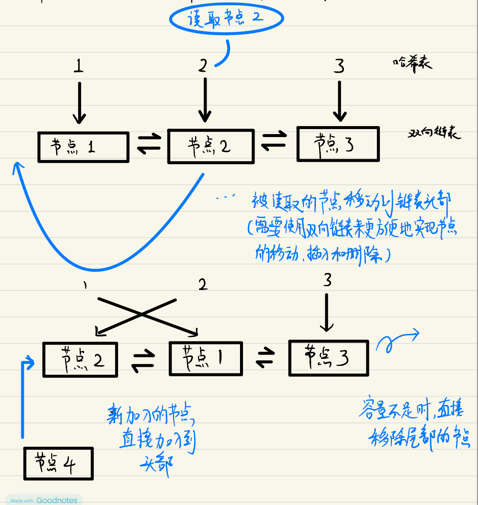 读取节点2
1 2 3 哈希表
节点1 节点2 节点3 双向链表
... 被读取的节点移动到链表头部
(需要使用双向链表来更方便地实现节点
的移动、插入和删除)
1 2 3
节点2 节点1 节点3
新加入的节点,
直接加入到
头部
容量不足时,直接
移除尾部的节点
节点4
Made with Goodnotes